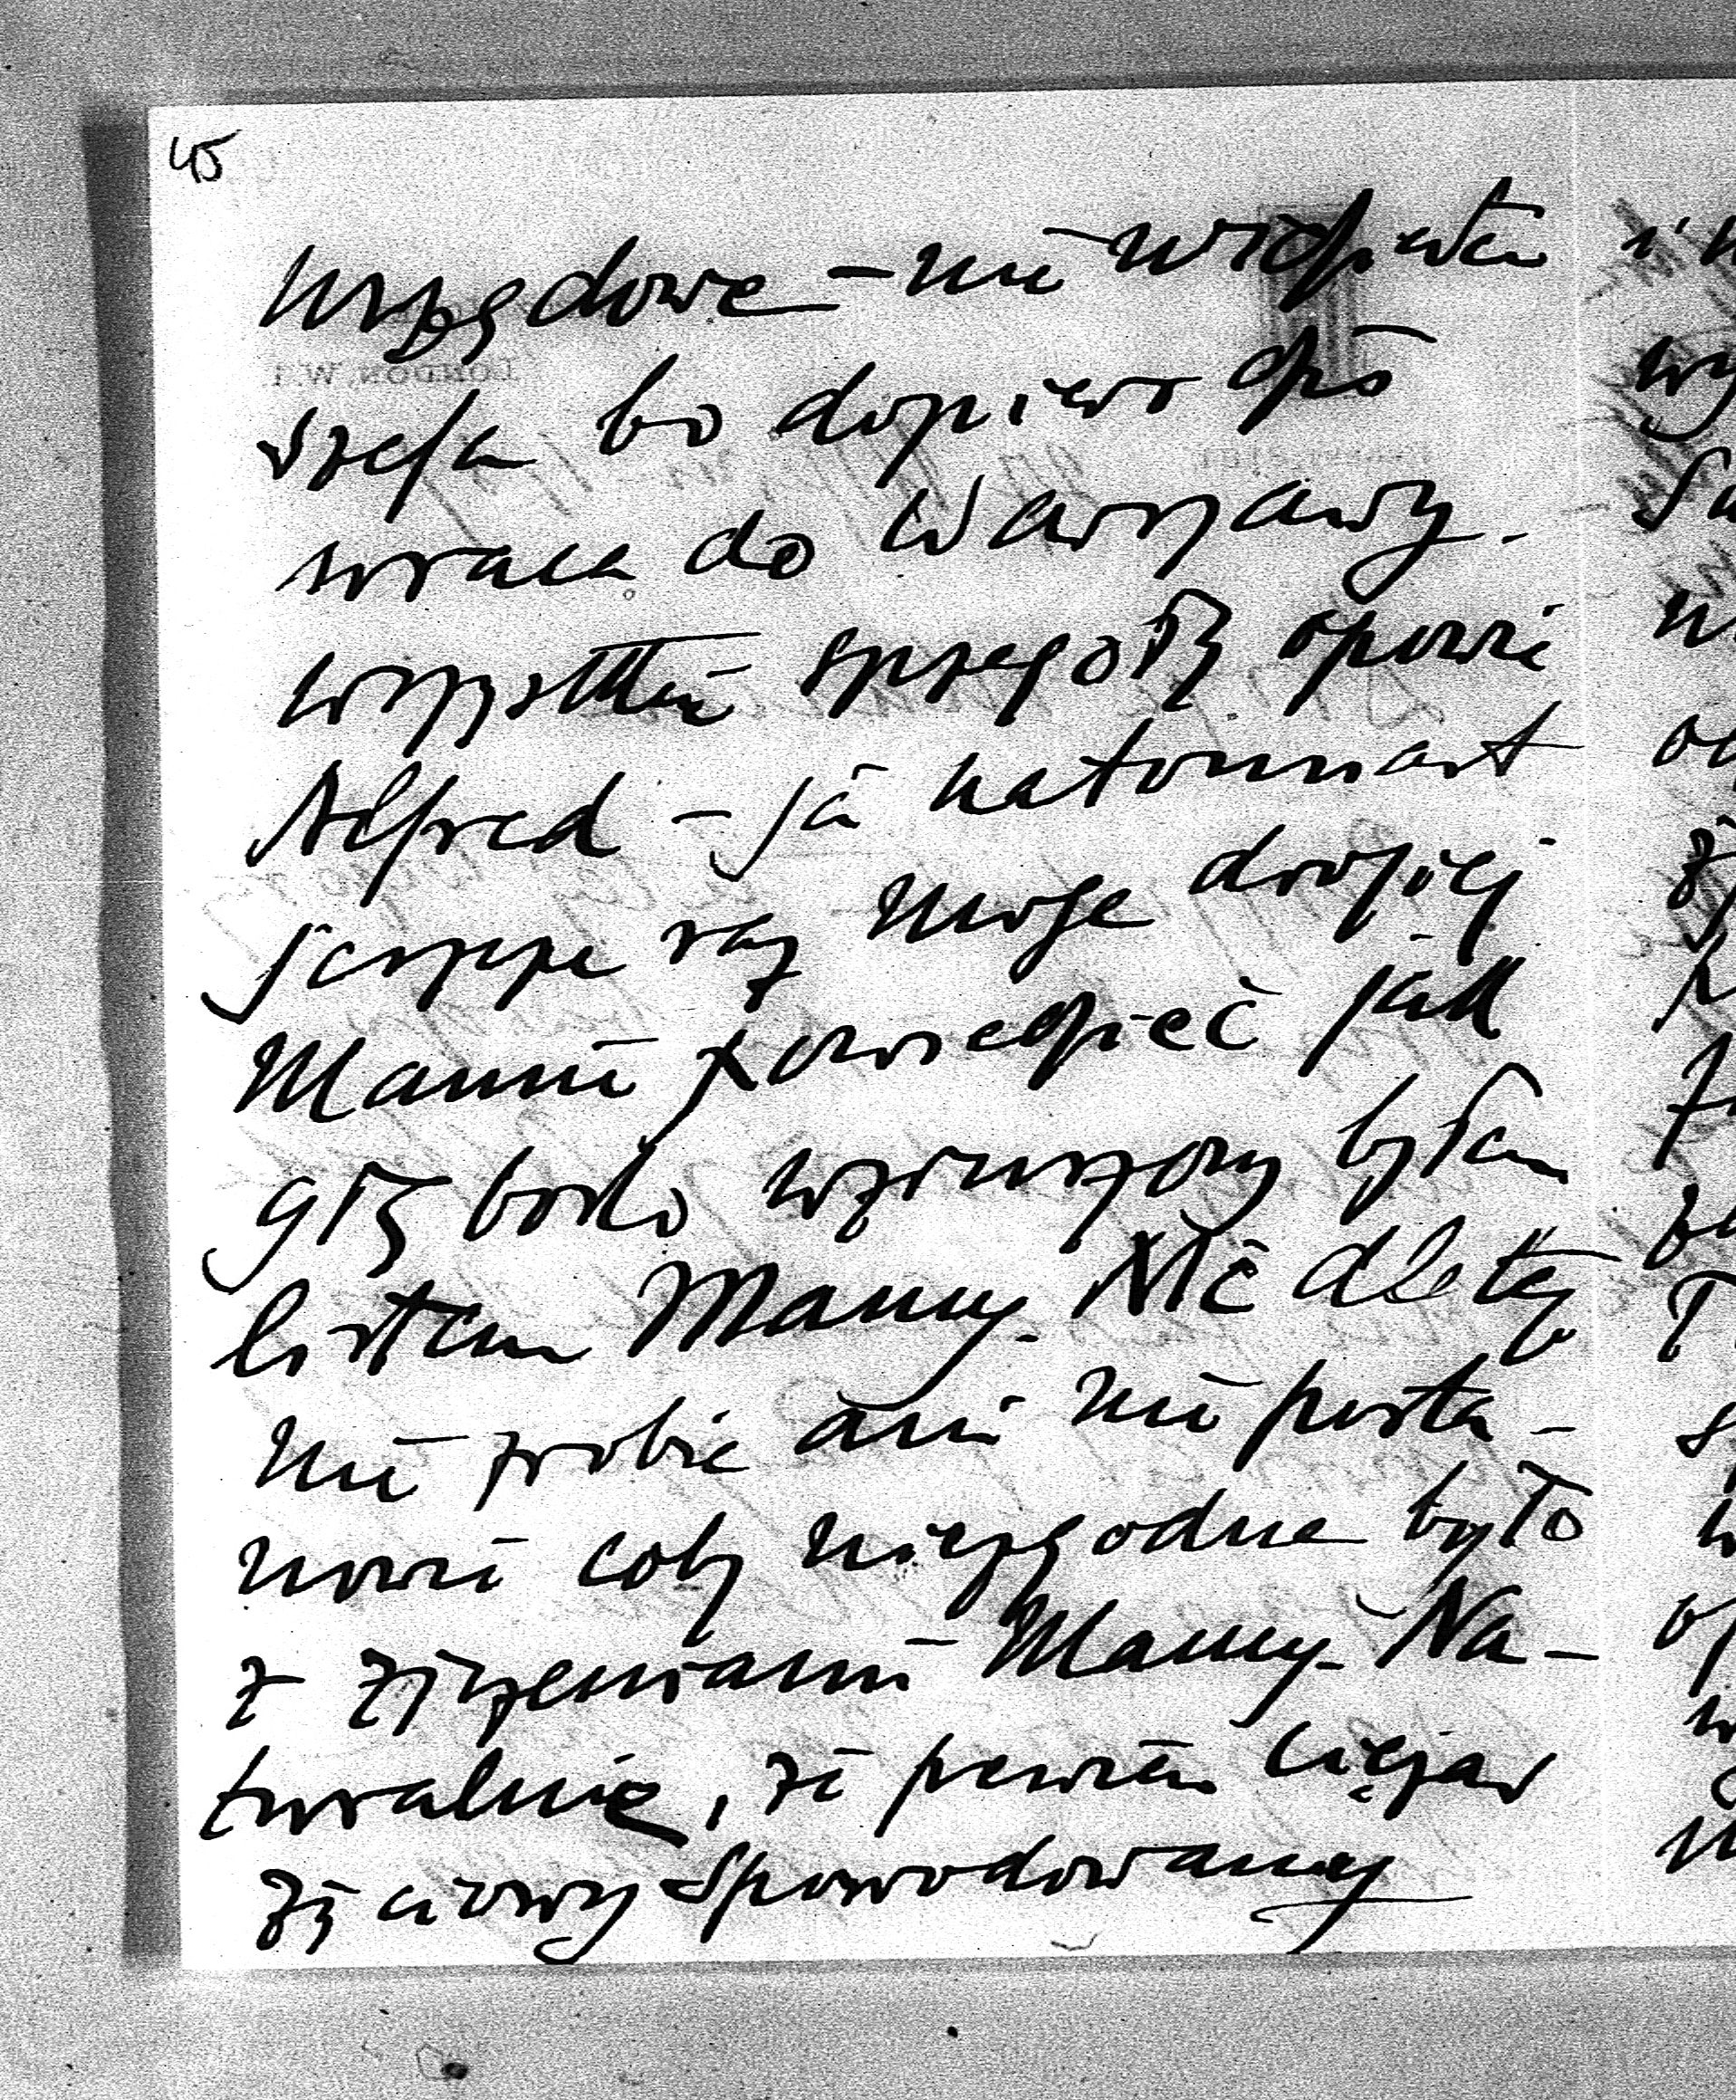 45
urzędowe – nie widziała
szefa bo dopiero dziś
wraca do Warszawy.
wszystkie szczegóły opowie
Alfred – ja natomiast
jeszcze raz mogę drogiej
Mamie powiedzieć jak
głęboko wzruszony byłem
listem Mamy. Nic dlatego
nie zrobię ani nie posta-
nowię coby niezgodne było
z życzeniami Mamy. Na-
turalnie, że pewien ciężar
życiowy spowodowany
LONDON, W.1.